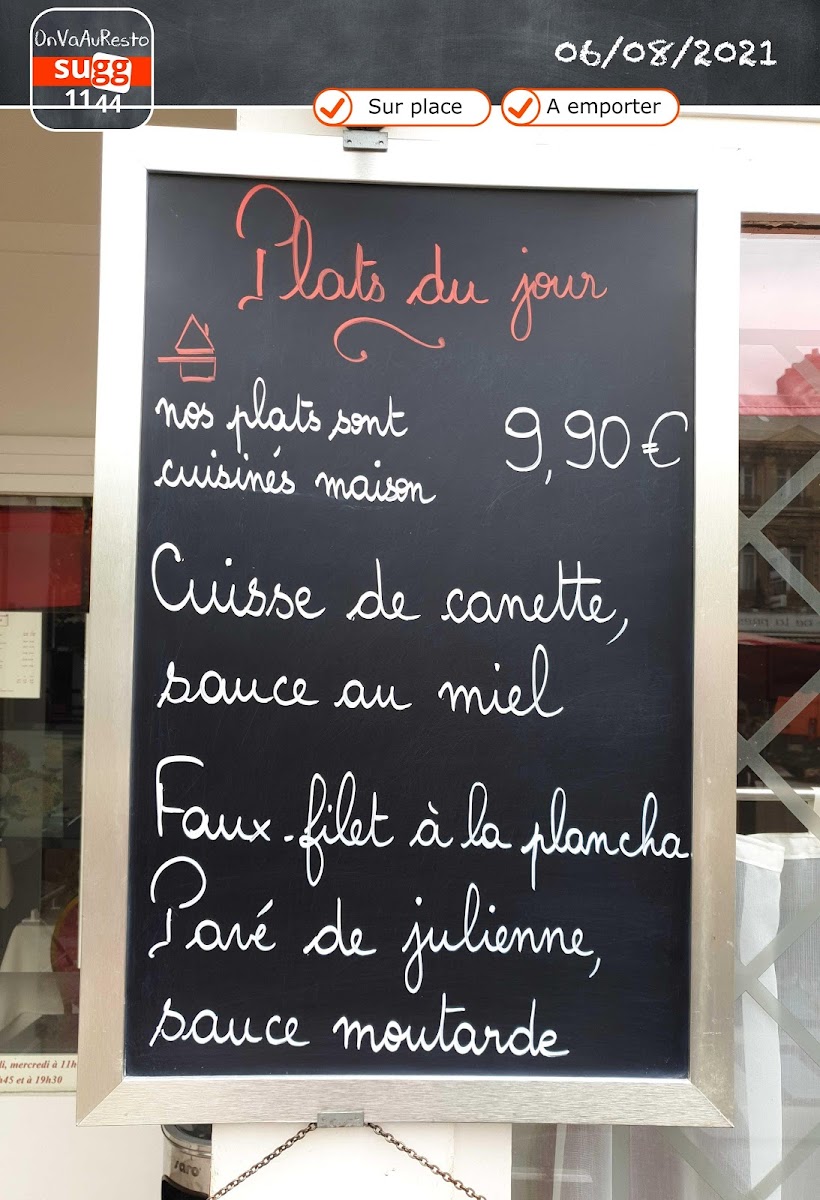 OnVaAuResto
sugg
1144
06/08/2021
Sur place
A emporter
Plats du jour
nos plats sont
cuisinés maison
9,90€
Cuisse de canette,
sauce au miel
Faux-filet à la plancha
Pavé de julienne,
sauce moutarde
di, mercredi à 11h
h45 et à 19h30
saro